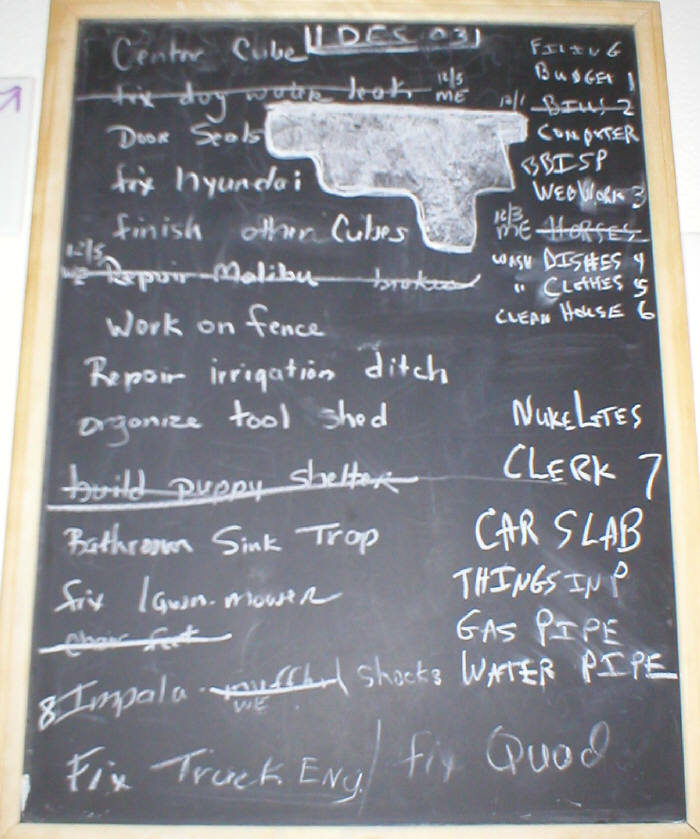 1 DEC 03
Center Cube
fix dog water leak 12/5 ME
Door Seals
fix hyundai
finish other Cubes
12/5 ME Repair Malibu broke
Work on fence
Repair irrigation ditch
organize tool shed
build puppy shelter
Bathroom Sink Trap
fix lawn-mower
chair feet
8 Impala - muffler shocks
WE
Fix Truck Eng / fix Quad
FILING
BUDGET 1
12/1 BILLS 2
COMPUTER
BBISP
WEBWORK 3
12/3 ME HORSES
WASH DISHES 4
" CLOTHES 5
CLEAN HOUSE 6
NUKELITES
CLERK 7
CAR SLAB
THINGS IN P
GAS PIPE
WATER PIPE